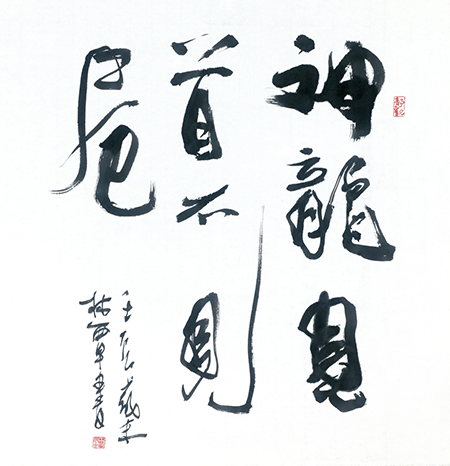 神龍見
首不見
尾
壬辰歲末